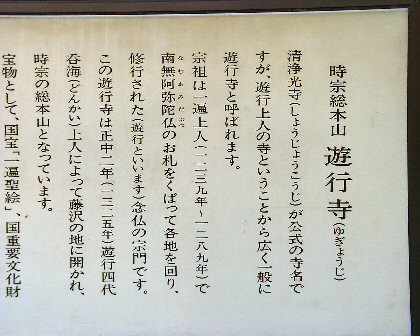 時宗総本山 遊行寺(ゆぎょうじ)
清浄光寺(しょうじょうこうじ)が公式の寺名で
すが、遊行上人の寺ということから広く一般に
遊行寺と呼ばれます。
宗祖は一遍上人(一二三九年~一二八九年)で
南無阿弥陀仏のお札をくばって各地を回り、
なむあみだぶつ
修行された(遊行といいます)念仏の宗門です。
この遊行寺は正中二年(一三二五年)遊行四代
呑海(どんかい)上人によって藤沢の地に開かれ、
時宗の総本山となっています。
宝物として、国宝「一遍聖絵」、国重要文化財